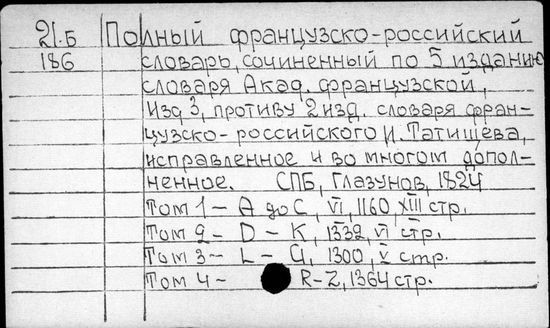 21.Б Полный французско-российский
186 словарь, сочиненный по 5 изданию
словаря Акад. французской,
Изд 3, противу 2 изд. словаря фран-
цузско-российского И. Татищева,
исправленное и во многом допол-
ненное. СПБ, Глазунов, 1824
Том 1 - A до C, VI, 1160, XIII стр.
Том 2 - D - K, 1332, VI стр.
Том 3 - L - Q, 1300, V стр.
Том 4 - R-Z, 1364 стр.